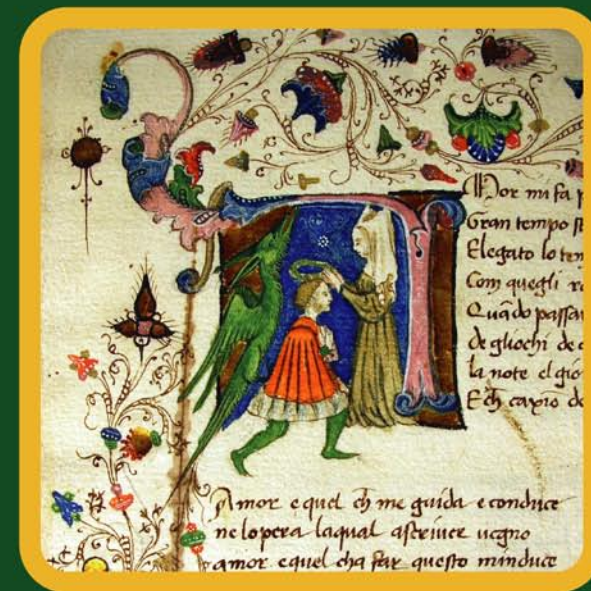 AMor mi fa
Gran tempo
Elegato lo
Com quegli
Quãdo passa
de gliochi de
la note el gio
E ch
Amor e quel ch me guida e conduce
ne lopera laqual ascriuer uegno
amor equel cha far questo minduce